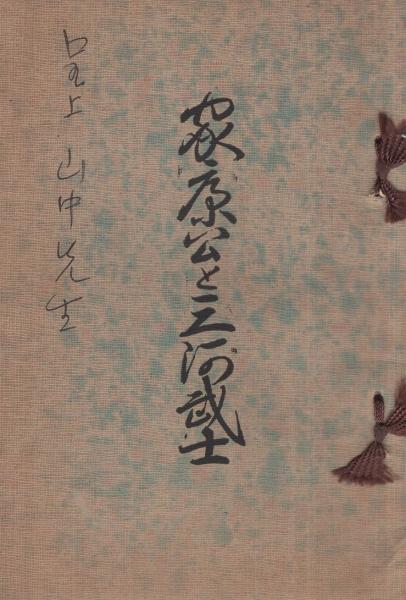 家康公と三河武士
呈上 山中先生